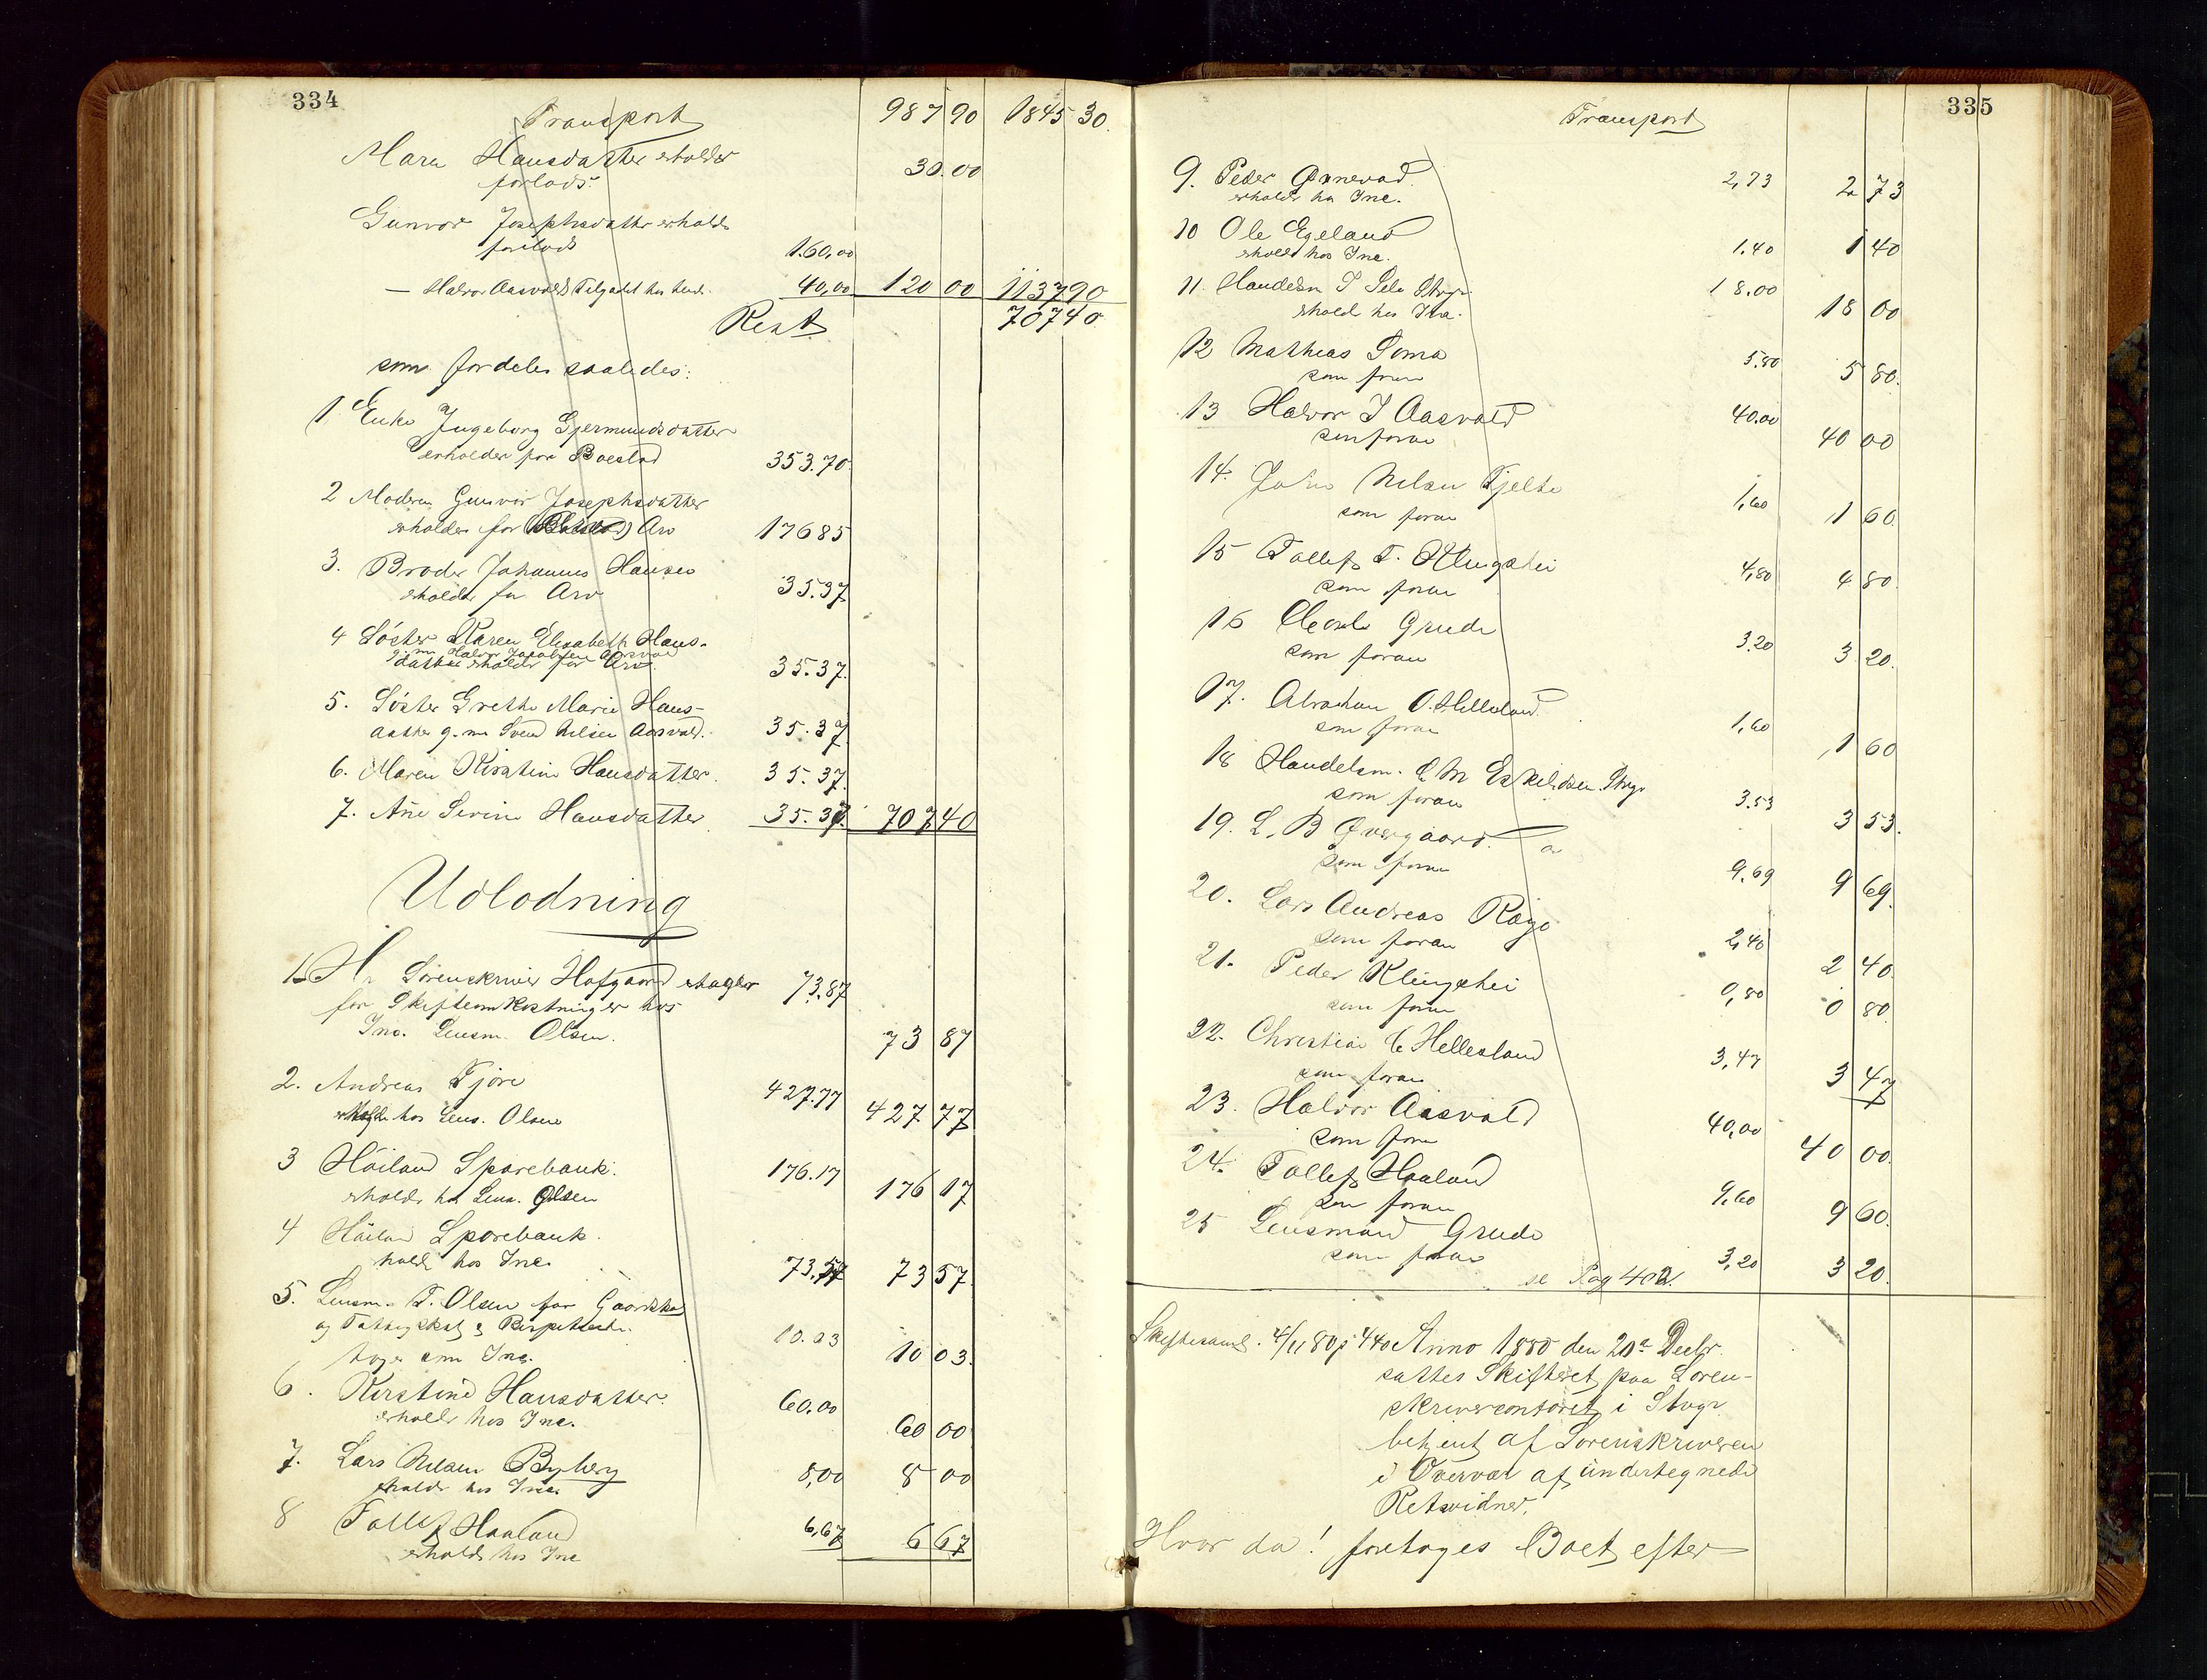 334
Transport 987 90 1845 30.
Maren Hansdatter erholder
forlods. 30.00
Gunvor Josephsdatter erholder
forlods 160,00
— Halvor Aasvolds Tilgodeh. hos hende. 40,00 120 00 1137 90
Rest 707 40
som fordeles saaledes:
1. Enke Ingeborg Gjermundsdatter
erholder for Boeslod 353.70
2 Moderen Gunvor Josephsdatter
erholder for Arv 176 85
3. Broder Johannes Hansen
erholder for Arv 35.37
4 Söster Karen Elisabeth Hans-
g. m. Halvor Jacobsen Aasvold
datter erholder for Arv. 35.37.
5. Söster Grethe Marie Hans-
datter g. m. Svend Nilsen Aasvald. 35.37
6. Maren Kirstine Hansdatter. 35.37.
7. Ane Serine Hansdatter 35.37. 707 40
Udlodning
1. Hr Sorenskriver Hofgaard erholder 73.87
for Skifteomkostninger hos
Inc. Lensm. Olsen. 73 87
2. Andreas Tjöre 427.77
erholder hos Lens. Olsen 427 77
3 Häiland Sparebank. 176.17
erholder hos Lens. Olsen 176 17
4 Häiland Sparebank.
hold. hos Inc. 73.57 73 57
5. Lensm. T. Olsen for Gaardskat
og Fattigskat & Repartition 10.03
tages som Inc. 10 03.
6. Kirstine Hansdatter. 60.00
erholder hos Inc. 60 00
7. Lars Nilsen Byberg 8,00 8 00
erholdr hos Inc.
8 Tollef Haaland 6,67 6 67
erholdr hos Inc
335
Transport
9. Peder Ønnevad. 2,73 2 73
erholder hos Inc.
10 Ole Egeland 1.40 1 40
erhold hos Inc.
11. Handelsm I Sele Stvgr. 18.00 18 00
erhold hos Inc.
12 Mathias Soma 5.80 5 80.
som foran
13 Halvor J Aasvold 40.00 40 00
som foran
14. John Nilsen Fjelde 1,60 1 60.
som foran
15 Tollef T. Klingshei 4,80 4 80.
som foran
16 Grude 3.20 3 20.
som foran
17. Abraham O. Hellesland. 1,60 1 60
som foran
18 Handelsm. C M Eskildsen Stvgr 3.53 3 53.
som foran
19. L. B Øvergaard. 9.69 9 69.
som foran
20. Lars Andreas Rage 2,40 2 40.
som foran
21. Peder Klingshei 0,80 0 80.
som foran
22. Christian C Hellesland 3,47 3 47
som foran.
23. Halvor Aasvald 40,00 40 00.
som foran
24. Tollef Haaland 9,60 9 60.
som foran
25 Lensmand Grude 3,20 3 20.
som foran
se Pag 402.
Skiftesaml. 4/11 80 p 440 Anno 1880 den 20de Decbr.
sattes Skifteret paa Soren-
skrivercontoret i Stvgr.
betjent af Sorenskriveren
i Overvær af undertegnede
Retsvidner,
Hvor da! foretoges Boet efter